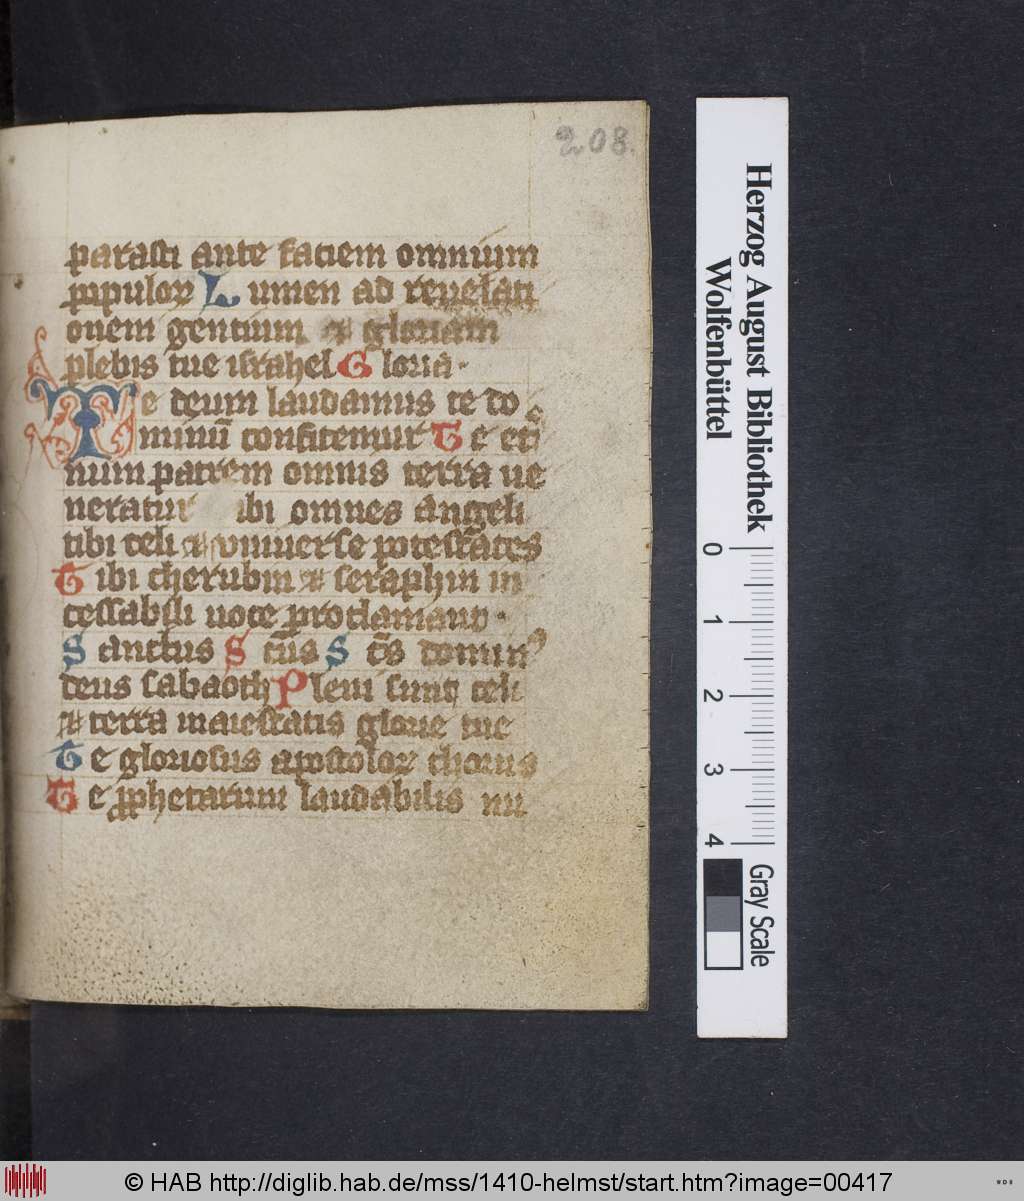 208.
parasti ante faciem omnium
pipuloꝝ Lumen ad revelati
onem gentium ⁊ gloriam
plebis tue israhel Gloria·
Te deum laudamus te do
minū confitemur Te et̄
num patrem omnis terra ve
neratur ibi omnes angeli
tibi celi ⁊ universe potestates
Tibi cherubin ⁊ seraphin in
cessabili uoce proclamant·
Sanctus Sc̄us Sc̄s domin⁹
deus sabaoth Pleni sunt celi
⁊ terra maiestatis glorie tue
Te gloriosus apostoloꝝ chorus
Te ꝓphetarum laudabilis nu
Herzog August Bibliothek
Wolfenbüttel
0
1
2
3
4
Gray Scale
© HAB http://diglib.hab.de/mss/1410-helmst/start.htm?image=00417